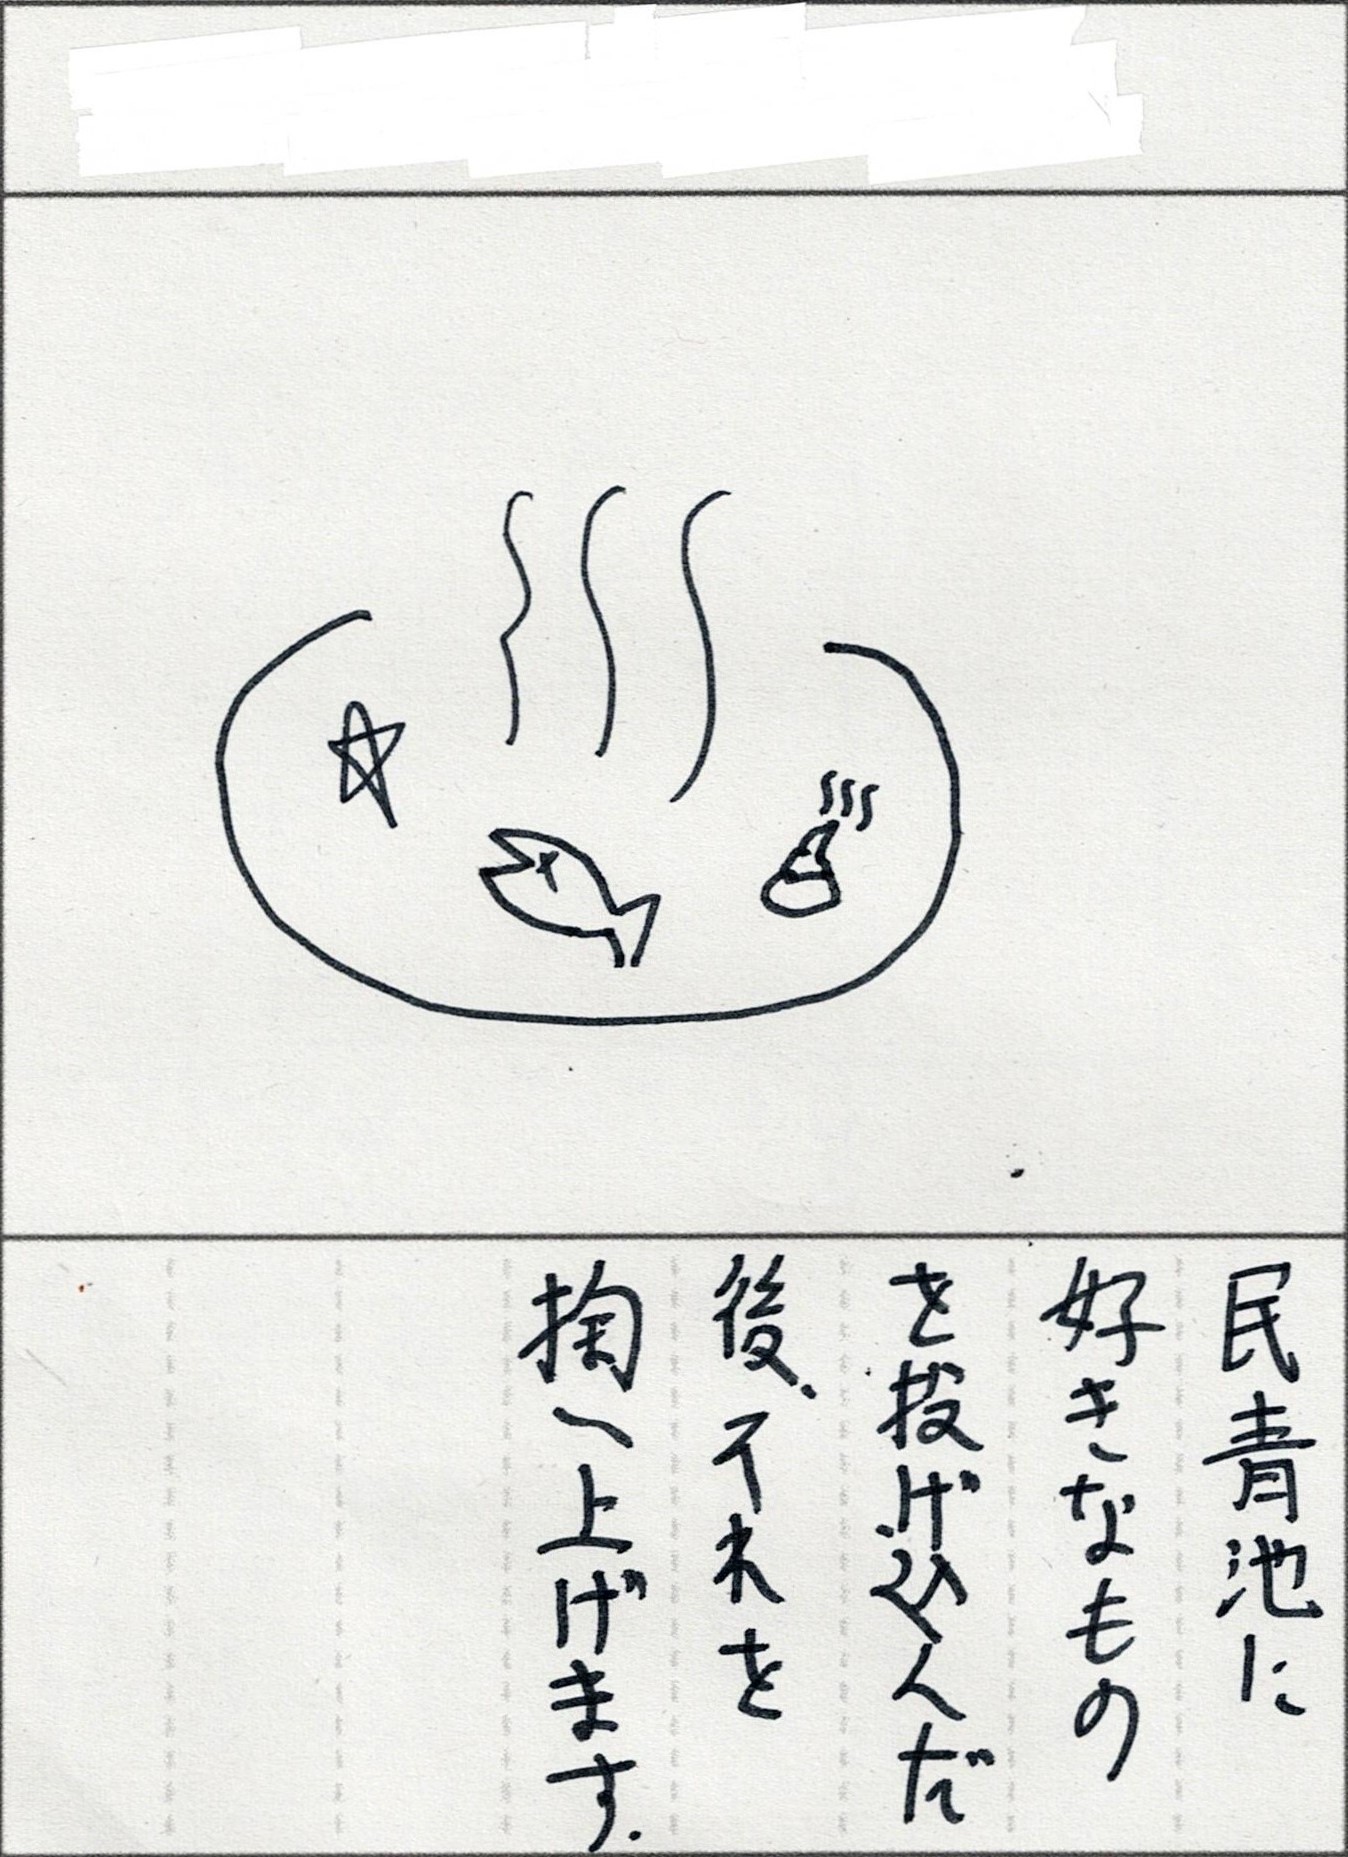 民青池に
好きなもの
を投げ込んだ
後、それを
掬い上げます.